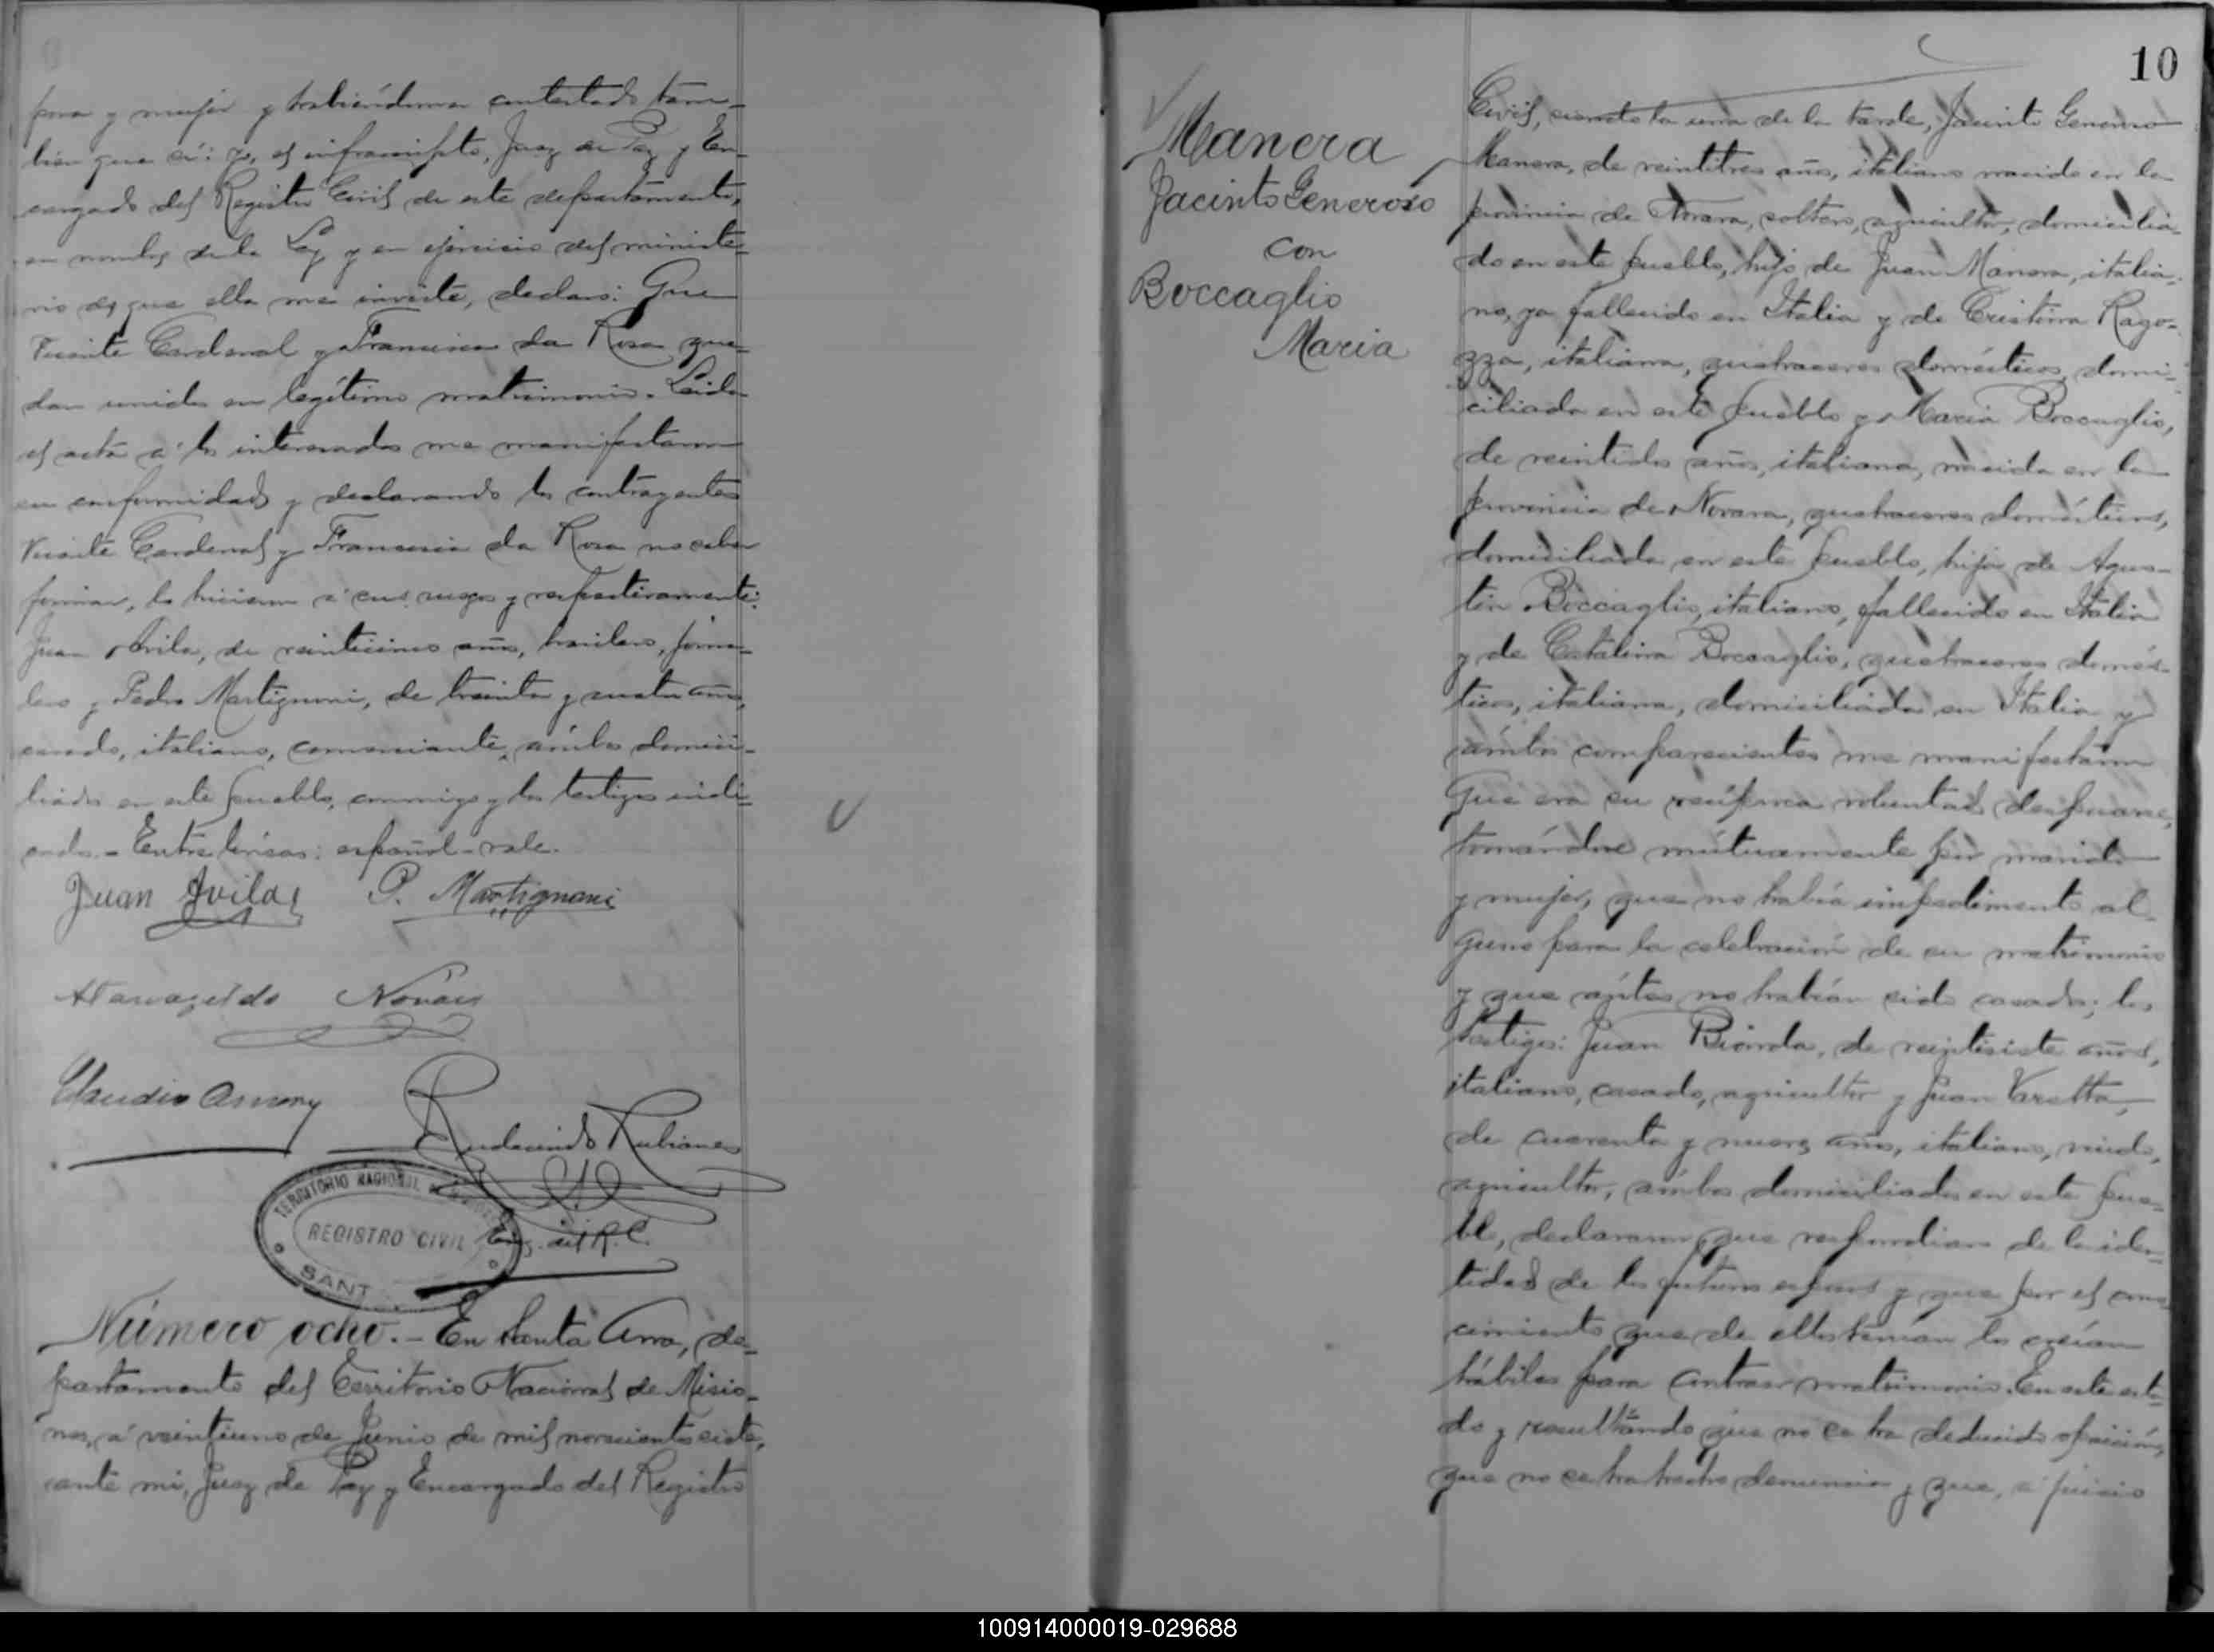 posa y mujer y habiéndome contestado tam-
bien que sí: yo, el infrascripto, Juez de Paz y En-
cargado del Registro Civil de este departamento,
en nombre de la Ley y en ejercicio del ministe-
rio de que ella me inviste, declaro: Que
Vicente Cardenal y Francisca da Rosa que-
dan unidos en legítimo matrimonio. Leida
el acta á los interesados me manifestaron
su conformidad y declarando los contrayentes
Vicente Cardenal y Francisca da Rosa no saber
firmar, lo hicieron á sus ruegos y respectivamente:
Juan Avila, de veinticinco años, brasilero, jorna-
lero y Pedro Martignoni, de treinta y cuatro años,
casado, italiano, comerciante, ámbos domici-
liados en este pueblo, conmigo y los testigos indi-
cados. - Entre líneas: español - vale.
Juan Avila P. Martignoni
Novaes
Claudio
Rudecindo Rubianes
Enc. del R. C.
TERRITORIO NACIONAL
REGISTRO CIVIL
SANT
Número ocho. - En Santa Ana, de-
partamento del Territorio Nacional de Misio-
nes, á veintiuno de Junio de mil novecientos siete,
ante mi, Juez de Paz y Encargado del Registro
10
Manera
Jacinto Generoso
con
Boccaglio
Maria
Civil, siendo la una de la tarde, Jacinto Generoso
Manera, de veintitres años, italiano nacido en la
provincia de Novara, soltero, agricultor, domicilia-
do en este pueblo, hijo de Juan Manera, italia-
no, ya fallecido en Italia y de Cristina Rago-
zza, italiana, quehaceres domésticos, domi-
ciliada en este pueblo y Maria Boccaglio,
de veintidos años, italiana, nacida en la
provincia de Novara, quehaceres domésticos,
domiciliada en este pueblo, hija de Agus-
tin Boccaglio, italiano, fallecido en Italia
y de Catalina Boccaglio, quehaceres domés-
ticos, italiana, domiciliada en Italia y
ámbos comparecientes me manifestaron
Que era su recíproca voluntad desposarse,
tomándose mútuamente por marido
y mujer, que no había impedimento al-
guno para la celebración de su matrimonio
y que ántes no habían sido casados; los
testigos: Juan Bionda, de veintisiete años,
italiano, casado, agricultor y Juan Varetta,
de cuarenta y nueve años, italiano, viudo,
agricultor, ámbos domiciliados en este pue-
blo, declararon que respondian de la iden-
tidad de los futuros esposos y que por el cono-
cimiento que de ellos tenían los creían
hábiles para contraer matrimonio. En este esta-
do y resultando que no se ha deducido oposición,
que no se ha hecho denuncia y que, á juicio
100914000019-029688